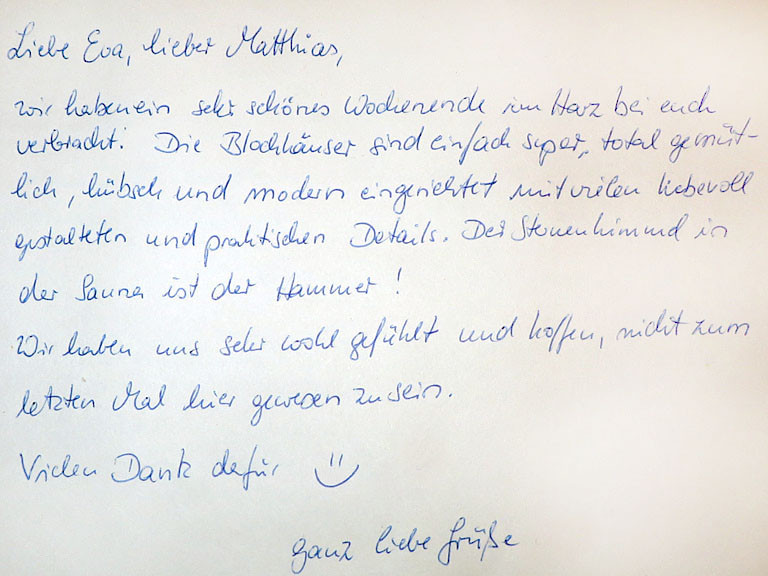 Liebe Eva, lieber Matthias,
wir haben ein sehr schönes Wochenende im Harz bei euch
verbracht! Die Blockhäuser sind einfach super, total gemüt-
lich, hübsch und modern eingerichtet mit vielen liebevoll
gestalteten und praktischen Details. Der Sternenhimmel in
der Sauna ist der Hammer!
Wir haben uns sehr wohl gefühlt und hoffen, nicht zum
letzten Mal hier gewesen zu sein.
Vielen Dank dafür
ganz liebe Grüße